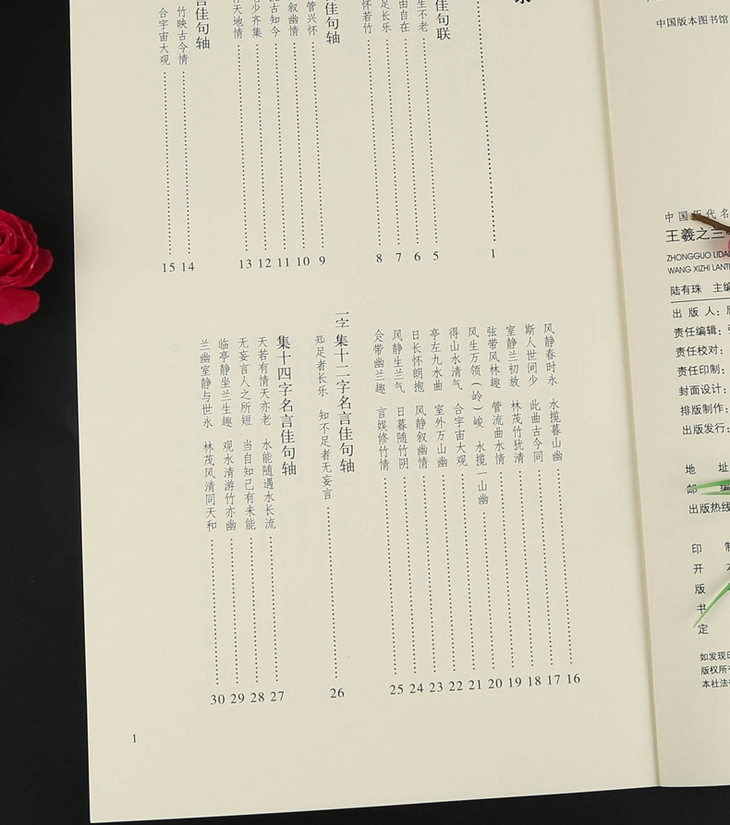 1
佳句联
生不老 5
由自在 6
足长乐 7
怀若竹 8
佳句轴
管兴怀 9
叙幽情 10
古知今 11
少齐集 12
天地情 13
言佳句轴
竹映古今情 14
合宇宙大观 15
风静春时永 水揽暮山幽 16
斯人世间少 此曲古今同 17
室静兰初放 林茂竹犹清 18
弦带风林趣 管流曲水情 19
风生万领（岭）峻 水揽一山幽 20
得山水清气 合宇宙大观 21
亭左九水曲 室外万山幽 22
日长怀朗抱 风静叙幽情 23
风静生兰气 日暮随竹阴 24
会带幽兰趣 言娱修竹情 25
集十二字名言佳句轴
知足者长乐 知不足者无妄言 26
集十四字名言佳句轴
天若有情天亦老 水能随遇水长流 27
无妄言人之所短 当自知己有未能 28
临亭静坐兰生趣 观水清游竹亦幽 29
兰幽室静与世永 林茂风清同天和 30
1
中国版本图书馆
中国历代名
王羲之兰
ZHONGGUO LIDAI
WANG XIZHI LANT
陆有珠 主编
出版人：
责任编辑：
责任校对：
责任印制：
封面设计：
排版制作：
出版发行：
地 址
邮 编
出版热线
印 制
开 本
版
书
定
如发现印
版权所有
本社法律